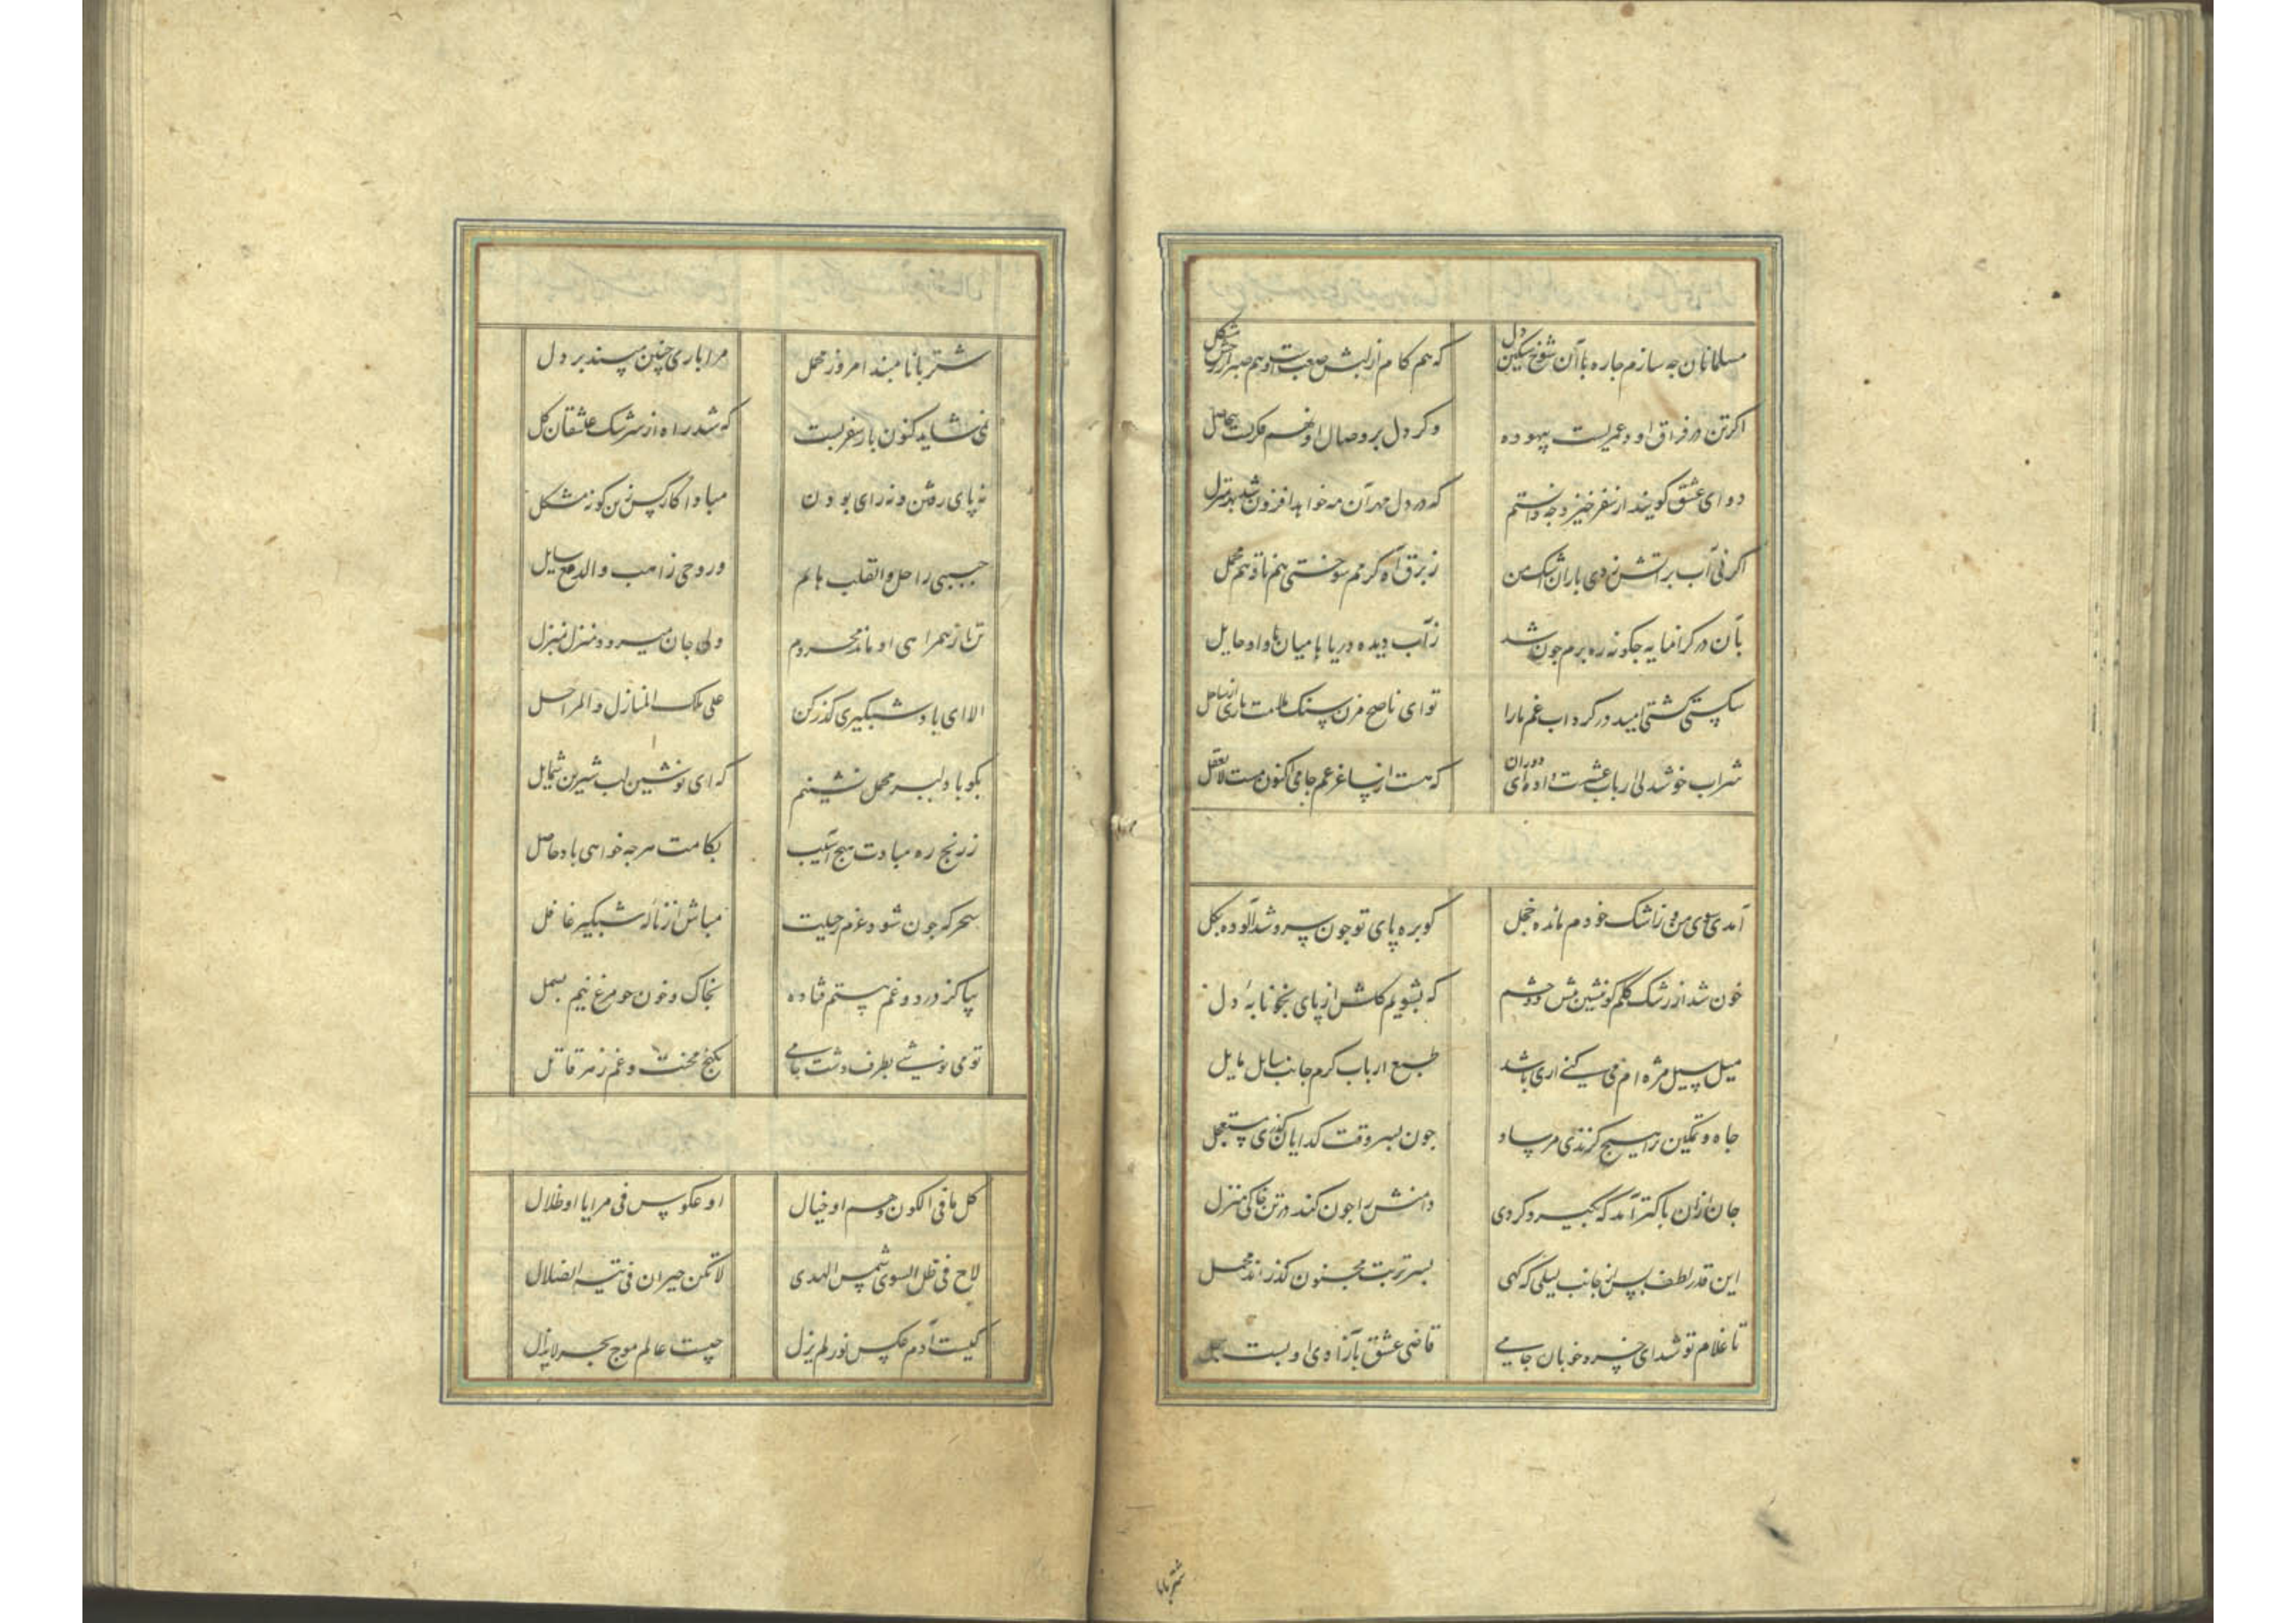 مسلمانان جه سازم جاره با آن شوخ سنکین دل که هم کام از لبش صعبست و هم صبر از رخش مشکل
اکر تن در فراق او دهم عمریست بیهوده وکر دل بر وصال او نهم فکریست بیحاصل
دوای عشق کویند از سفر خیزد جه دانستم که در دل مهر آن مه خواهد افزون شد بهر منزل
اکر نی آب بر آتش زدی باران اشک من ز برق آه کرمم سوختی هم ناقه هم محمل
بآن در کرانمایه جکونه ره برم جون شد ز آب دیده دریاها میان ما و او حایل
شکستی کشتی امید در کرداب غم ما را تو ای ناصح مزن سنک ملامت باری از ساحل
شراب خوشدلی ارباب عشرت را ده ای دوران که هست از ساغر غم جامی اکنون مست لایعقل
آمدی سوی من و ز اشک خودم مانده خجل کو بره پای تو جون سرو شد آلوده بکل
خون شد از رشک کلم کو نشین پیش دو چشم که بشویم کلش از پای بخونابهٔ دل
میل سیل مژه ام می کنی اری باشد طبع ارباب کرم جانب سایل مایل
جاه و تمکین ترا هیچ کزندی مرساد جون بسر وقت کدایان کذری مستعجل
جان ازان پاکتر آمد که بکیرد کردی دامنش را جون کند در تن خاکی منزل
این قدر لطف بس از جانب لیلی که کهی بسر تربت مجنون کذراند محمل
تا غلام تو شد ای خسرو خوبان جامی قاضی عشق بآزادی او بست سجل
شتربانا
شتربانا مبند امروز محمل مرا باری چنین مپسند بر دل
نمی شاید کنون بار سفر بست که شد راه از سرشک عاشقان کل
نه پای رفتن و نه رای بودن مبادا کار کس زین کونه مشکل
حبیبی راحل والقلب هائم وروحی ذاهب والدمع سایل
تن ار از همراهی او ماند محروم ولی جان میرود منزل بمنزل
الا ای باد شبکیری کذر کن علی تلک المنازل والمراحل
بکو با دلبر محمل نشینم که ای نوشین لب شیرین شمایل
ز رنج ره مبادت هیچ آسیب بکامت هرجه خواهی باد حاصل
سحرکه جون شود عزم رحیلت مباش از نالهٔ شبکیر غافل
بیا کز درد و غم هستم فتاده بخاک و خون جو مرغ نیم بسمل
تو می نوشی بطرف دشت جامی بکنج محنت و غم زهر قاتل
کل ما فی الکون وهم او خیال او عکوس فی مرایا او ظلال
لاح فی ظل السوی شمس الهدی لا تکن حیران فی تیه الضلال
کیست آدم عکس نور لم یزل چیست عالم موج بحر لایزال